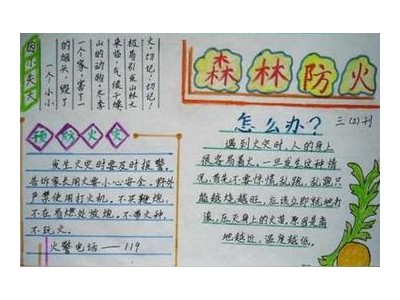 因小失大
一个小小
的烟头,毁了
一个家,害了一
山的动物。冬季
来临,气候干燥
极易引发山林大
火,切记!切记!
森林防火
怎么办?
三(2)刊
遇到火灾时,人的身上
很容易着火,一旦发生这种情
况,首先不要惊慌乱跑,乱跑只
能越烧越旺,应该立即就地打
滚,压灭身上的火苗,原因是离
地越近,温度越低。
预防火灾
发生火灾时要及时报警。
告诉家长用火要小心安全。野外
严禁使用打火机。不买鞭炮,
不在易燃处放炮。不带火种,
不玩火。
火警电话——119